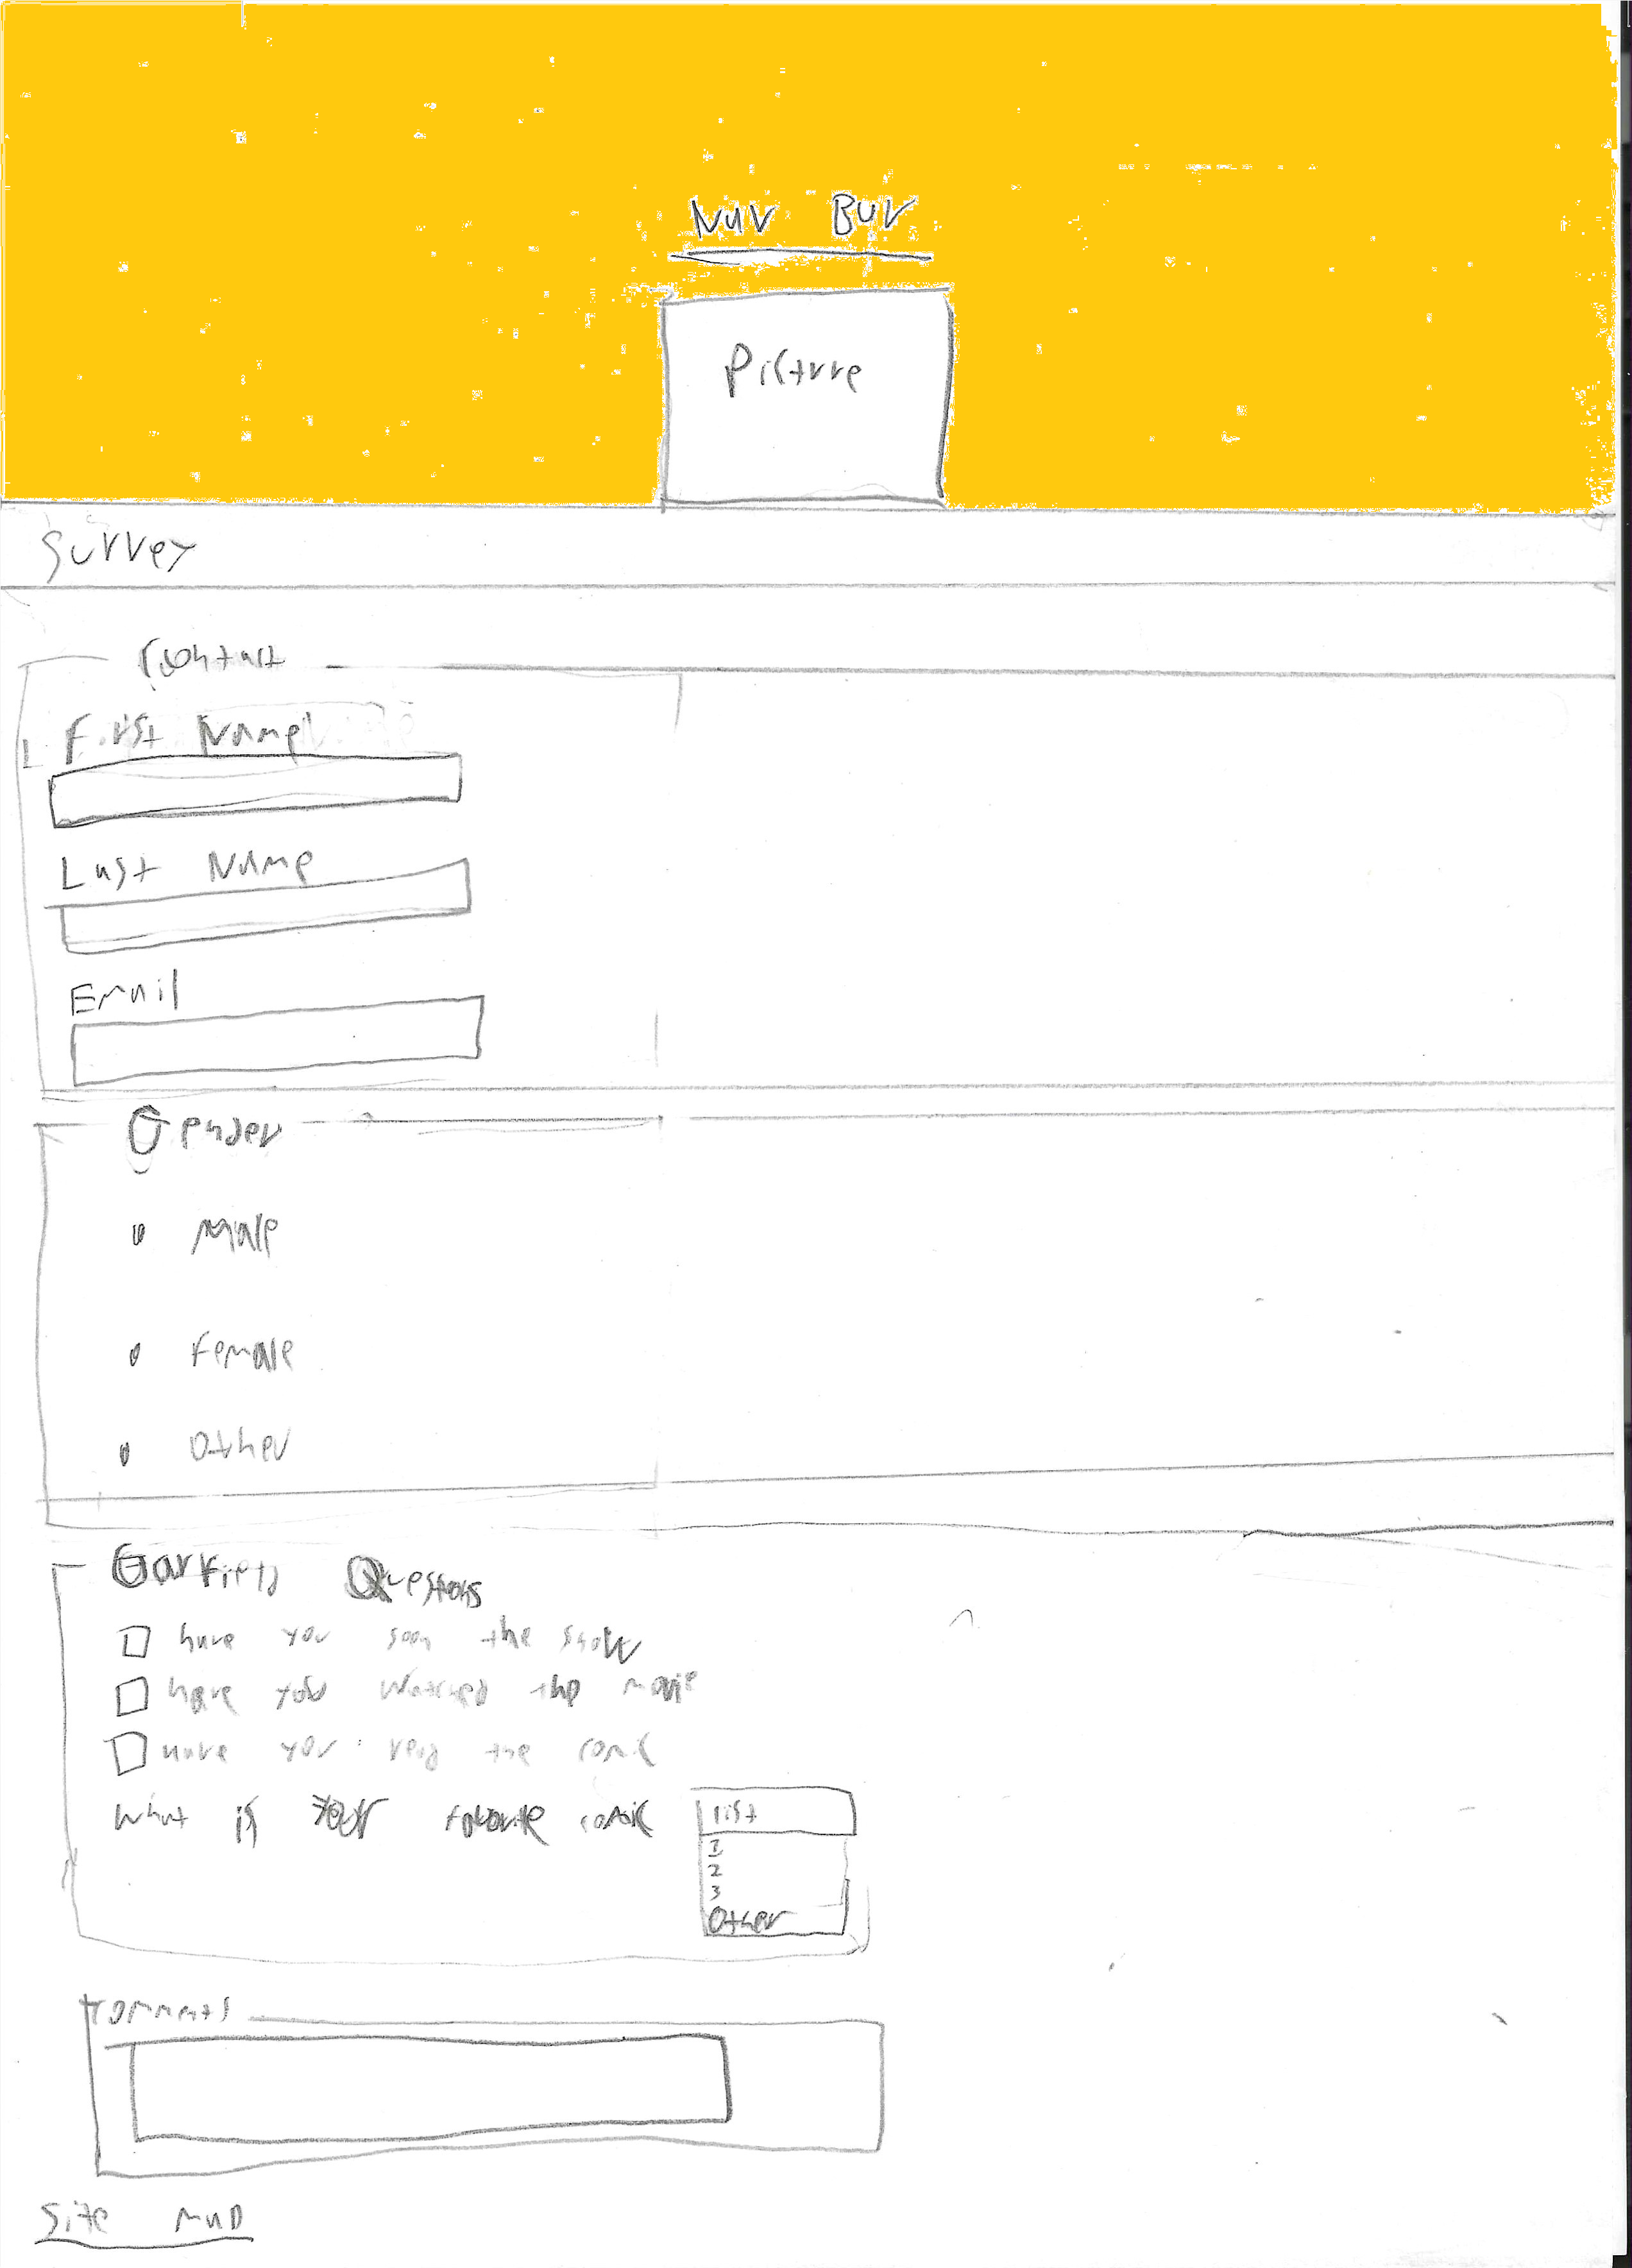 Nav Bar
Picture
Survey
Contact
First Name
Last Name
Email
Gender
Male
Female
Other
Garfield Questions
have you seen the show
have you watched the movie
have you read the comic
What is your favorite comic
list
1
2
3
Other
Comments
Site map